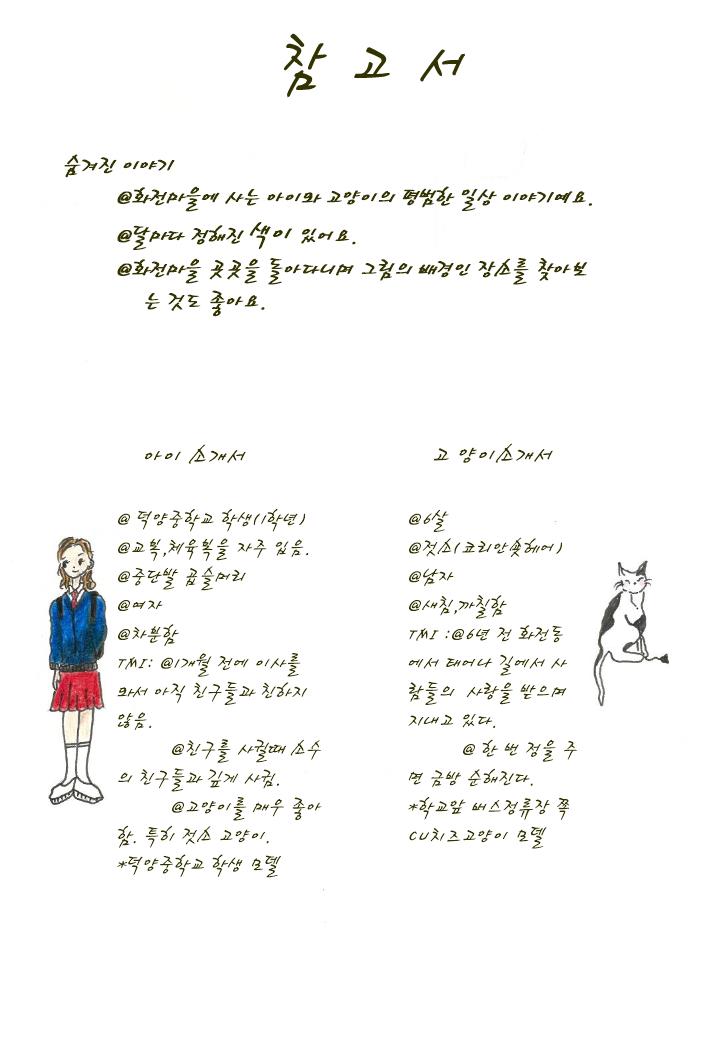 참 고 서
숨겨진 이야기
@화전마을에 사는 아이와 고양이의 평범한 일상 이야기예요.
@달마다 정해진 색이 있어요.
@화전마을 곳곳을 돌아다니며 그림의 배경인 장소를 찾아보
는 것도 좋아요.
아이 소개서
@ 덕양중학교 학생(1학년)
@교복,체육복을 자주 입음.
@중단발 곱슬머리
@여자
@차분함
TMI: @1개월 전에 이사를
와서 아직 친구들과 친하지
않음.
@친구를 사귈때 소수
의 친구들과 깊게 사귐.
@고양이를 매우 좋아
함. 특히 젓소 고양이.
*덕양중학교 학생 모델
고 양이소개서
@6살
@젓소(코리안숏헤어)
@남자
@새침,까칠함
TMI :@6년 전 화전동
에서 태어나 길에서 사
람들의 사랑을 받으며
지내고 있다.
@ 한 번 정을 주
면 금방 순해진다.
*학교앞 버스정류장 쪽
CU치즈고양이 모델